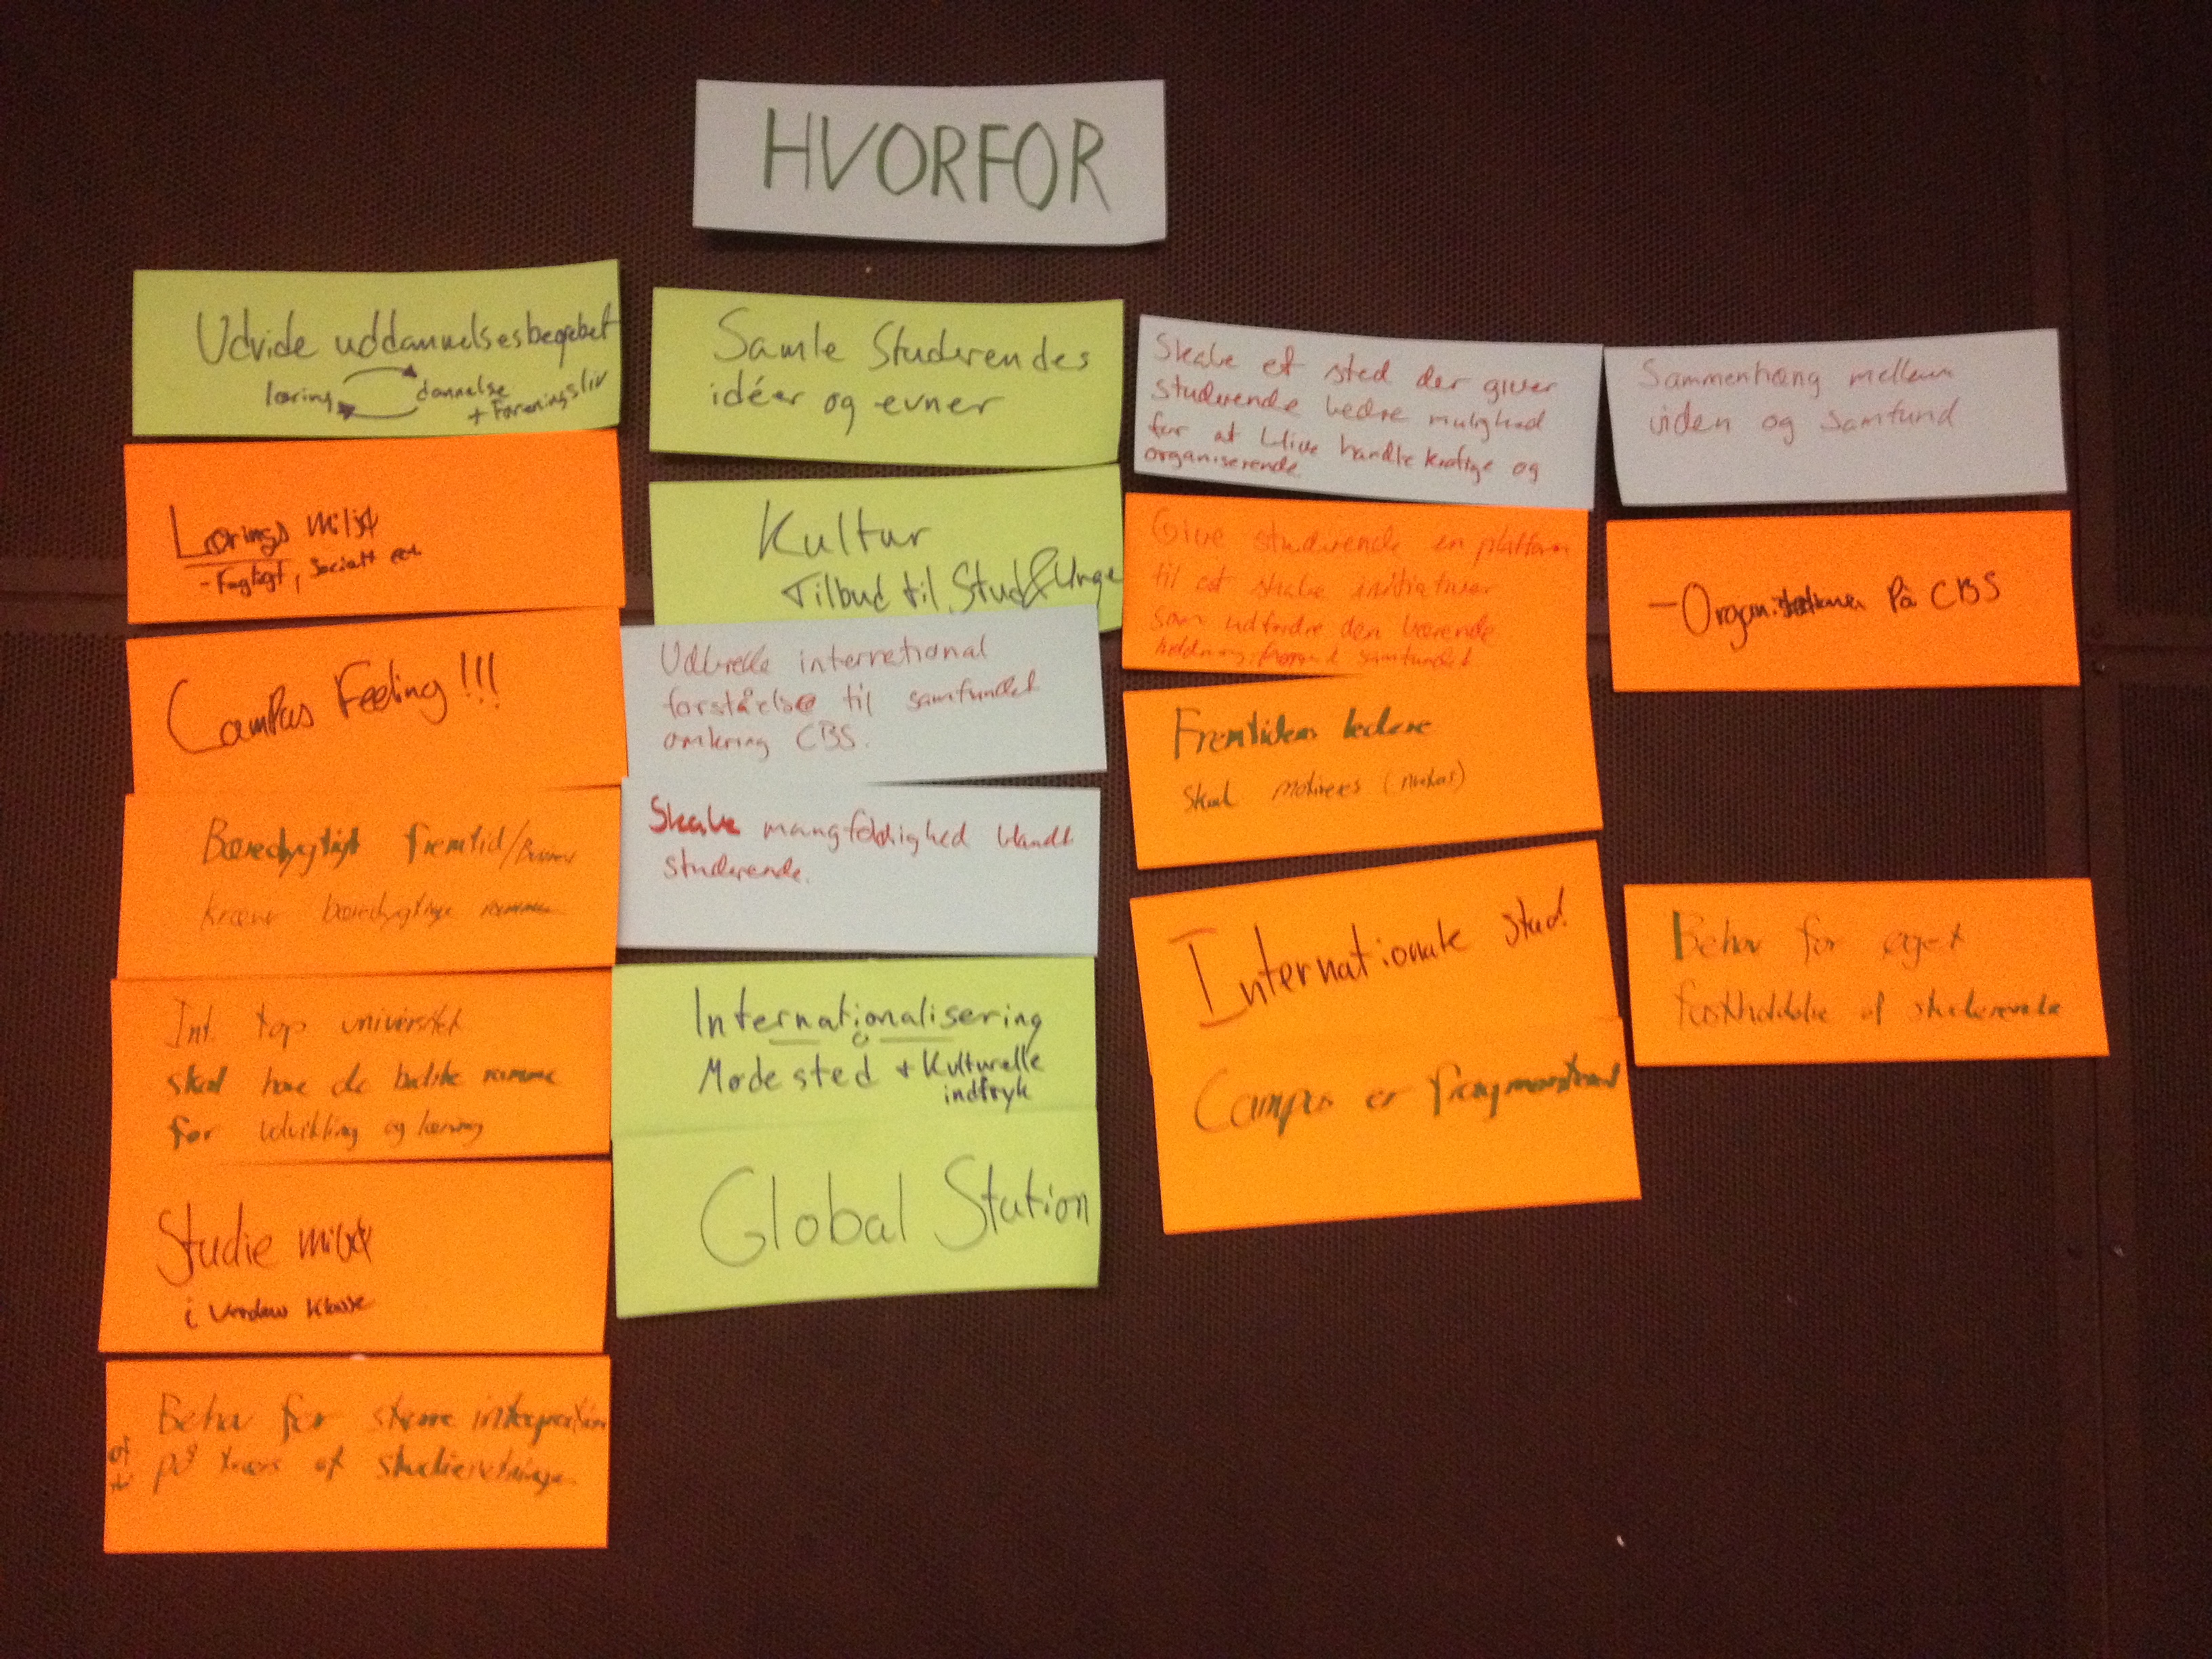 HVORFOR
Udvide uddannelsesbegebet
læring dannelse
+ Foreningsliv
Lærings miljø
- Fagligt, Socialt
Campus Feeling!!!
Bæredygtigt fremtid/
kræver bæredygtige
Int. top universitet
skal have de bedste ramme
for udvikling og læring
Studie miljø
i verdens klasse
Behov for større integration
på tværs af studieretninger
Samle Studerendes
idéer og evner
Kultur
Tilbud til Stud & Unge
Udbrede international
forståelse til samfundet
omkring CBS.
Skabe mangfoldighed blandt
studerende.
Internationalisering
Mødested + Kulturelle
indtryk
Global Station
Skabe et sted der giver
studerende bedre mulighed
for at blive handlekraftige og
organiserende
Give studerende en platform
til at skabe initiativer
som udfordre den værende
samfundet
Fremtidens ledere
skal motiveres
Internationale stud.
Campus er fragmenteret
Sammenhæng mellem
viden og samfund
- Organisationer På CBS
Behov for øget
fastholdelse af studerende